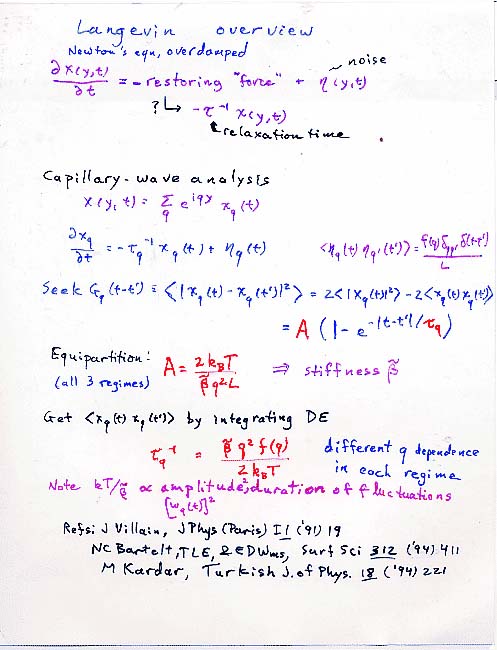 Langevin overview
Newton's eqn, overdamped
∂x(y,t)/∂t = - restoring "force" + η(y,t)
~ noise
? ↳ -τ⁻¹ x(y,t)
↖ relaxation time
Capillary-wave analysis
x(y,t) = Σ_q e^{iqy} x_q(t)
∂x_q/∂t = -τ_q⁻¹ x_q(t) + η_q(t) <η_q(t) η_q'(t')> = f(q) δ_qq' δ(t-t')/L
Seek G_q(t-t') ≡ <|x_q(t) - x_q(t')|²> = 2<|x_q(t)|²> - 2<x_q(t) x_q(t')>
= A (1 - e^{-|t-t'|/τ_q})
Equipartition: A = 2k_BT/(β̃ q² L) ⇒ stiffness β̃
(all 3 regimes)
Get <x_q(t) x_q(t')> by integrating DE
τ_q⁻¹ = β̃ q² f(q)/(2 k_B T) different q dependence
in each regime
Note kT/β̃ ∝ amplitude², duration of fluctuations
[w_q(t)]²
Refs: J Villain, J Phys (Paris) I 1 ('91) 19
NC Bartelt, TLE, & EDWms, Surf Sci 312 ('94) 411
M Kardar, Turkish J. of Phys. 18 ('94) 221